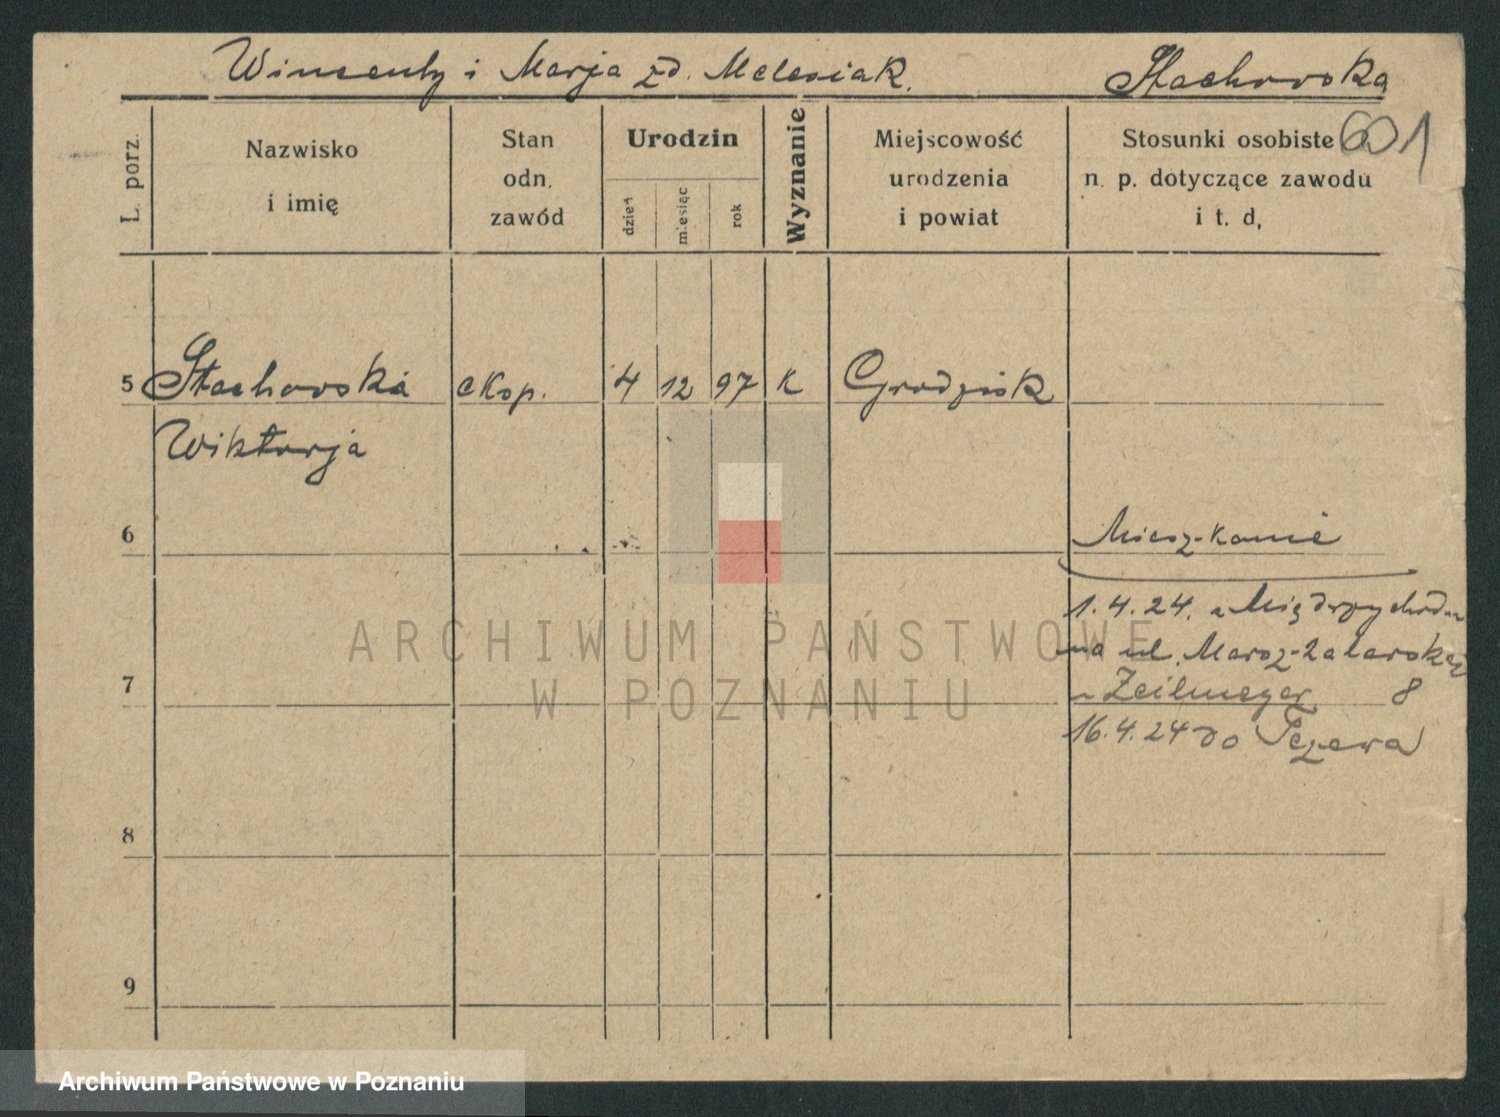 Wincenty i Marja zd. Melesiak. Stachowska
601
L. porz.
Nazwisko
i imię
Stan
odn.
zawód
Urodzin
dzień
miesiąc
rok
Wyznanie
Miejscowość
urodzenia
i powiat
Stosunki osobiste
n. p. dotyczące zawodu
i t. d,
5 Stachowska eksp. 4 12 97 K Grodzisk
Wiktorja
6 Mieszkanie
1.4.24. z Międzychodu
na ul.
7 u Zeilmeyer 8
16.4.24 do Tczewa
8
9
ARCHIWUM PAŃSTWOWE
W POZNANIU
Archiwum Państwowe w Poznaniu